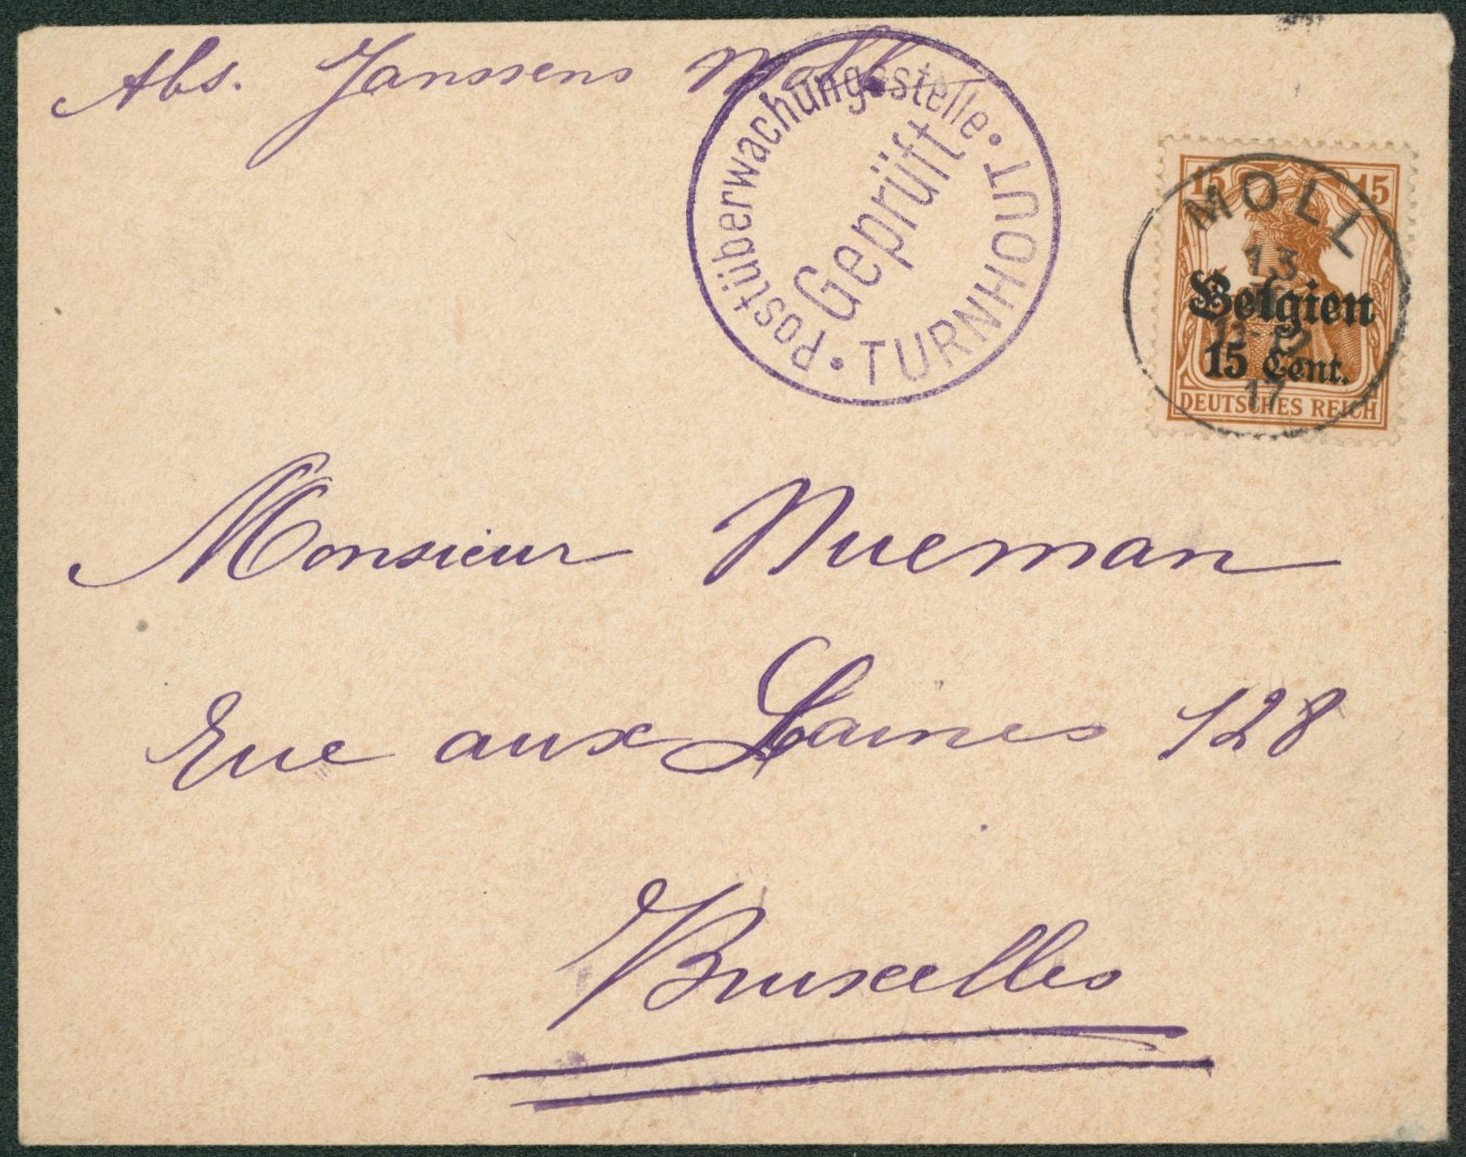 Abs. Janssens Moll
Postüberwachungsstelle • TURNHOUT •
Geprüft
15 15
Belgien
15 Cent.
DEUTSCHES REICH
MOLL
13
11-12
17
Monsieur Nueman
Rue aux Laines 128
Bruxelles